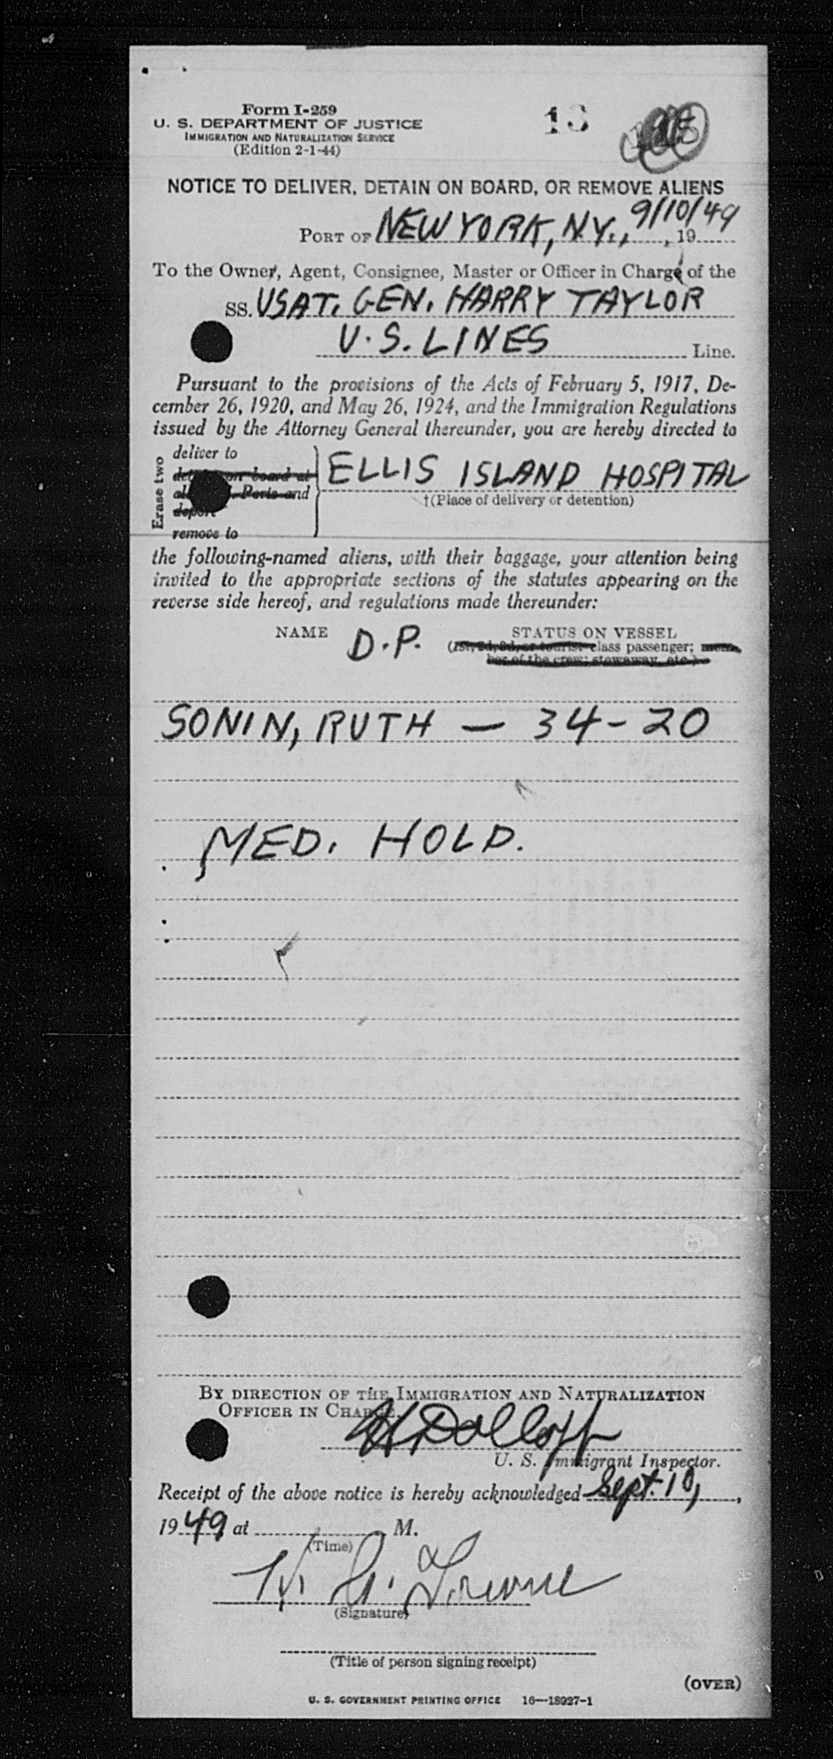 Form I-259
U. S. DEPARTMENT OF JUSTICE
IMMIGRATION AND NATURALIZATION SERVICE
(Edition 2-1-44)
13
NOTICE TO DELIVER, DETAIN ON BOARD, OR REMOVE ALIENS
PORT OF NEW YORK, N.Y., 9/10/49, 19
To the Owner, Agent, Consignee, Master or Officer in Charge of the
SS. USAT. GEN. HARRY TAYLOR
U.S. LINES Line.
Pursuant to the provisions of the Acts of February 5, 1917, De-
cember 26, 1920, and May 26, 1924, and the Immigration Regulations
issued by the Attorney General thereunder, you are hereby directed to
Erase two
deliver to
detain on board at
Ports and
deport
remove to
ELLIS ISLAND HOSPITAL
†(Place of delivery or detention)
the following-named aliens, with their baggage, your attention being
invited to the appropriate sections of the statutes appearing on the
reverse side hereof, and regulations made thereunder:
NAME D.P. STATUS ON VESSEL
(1st, 2d, 3d, or tourist class passenger; mem-
ber of the crew; stowaway, etc.)
SONIN, RUTH — 34-20
MED. HOLD.
BY DIRECTION OF THE IMMIGRATION AND NATURALIZATION
OFFICER IN CHARGE
U. S. Immigrant Inspector.
Receipt of the above notice is hereby acknowledged Sept. 10,
1949 at M.
(Time)
(Signature)
(Title of person signing receipt)
(OVER)
U. S. GOVERNMENT PRINTING OFFICE 16—18927-1